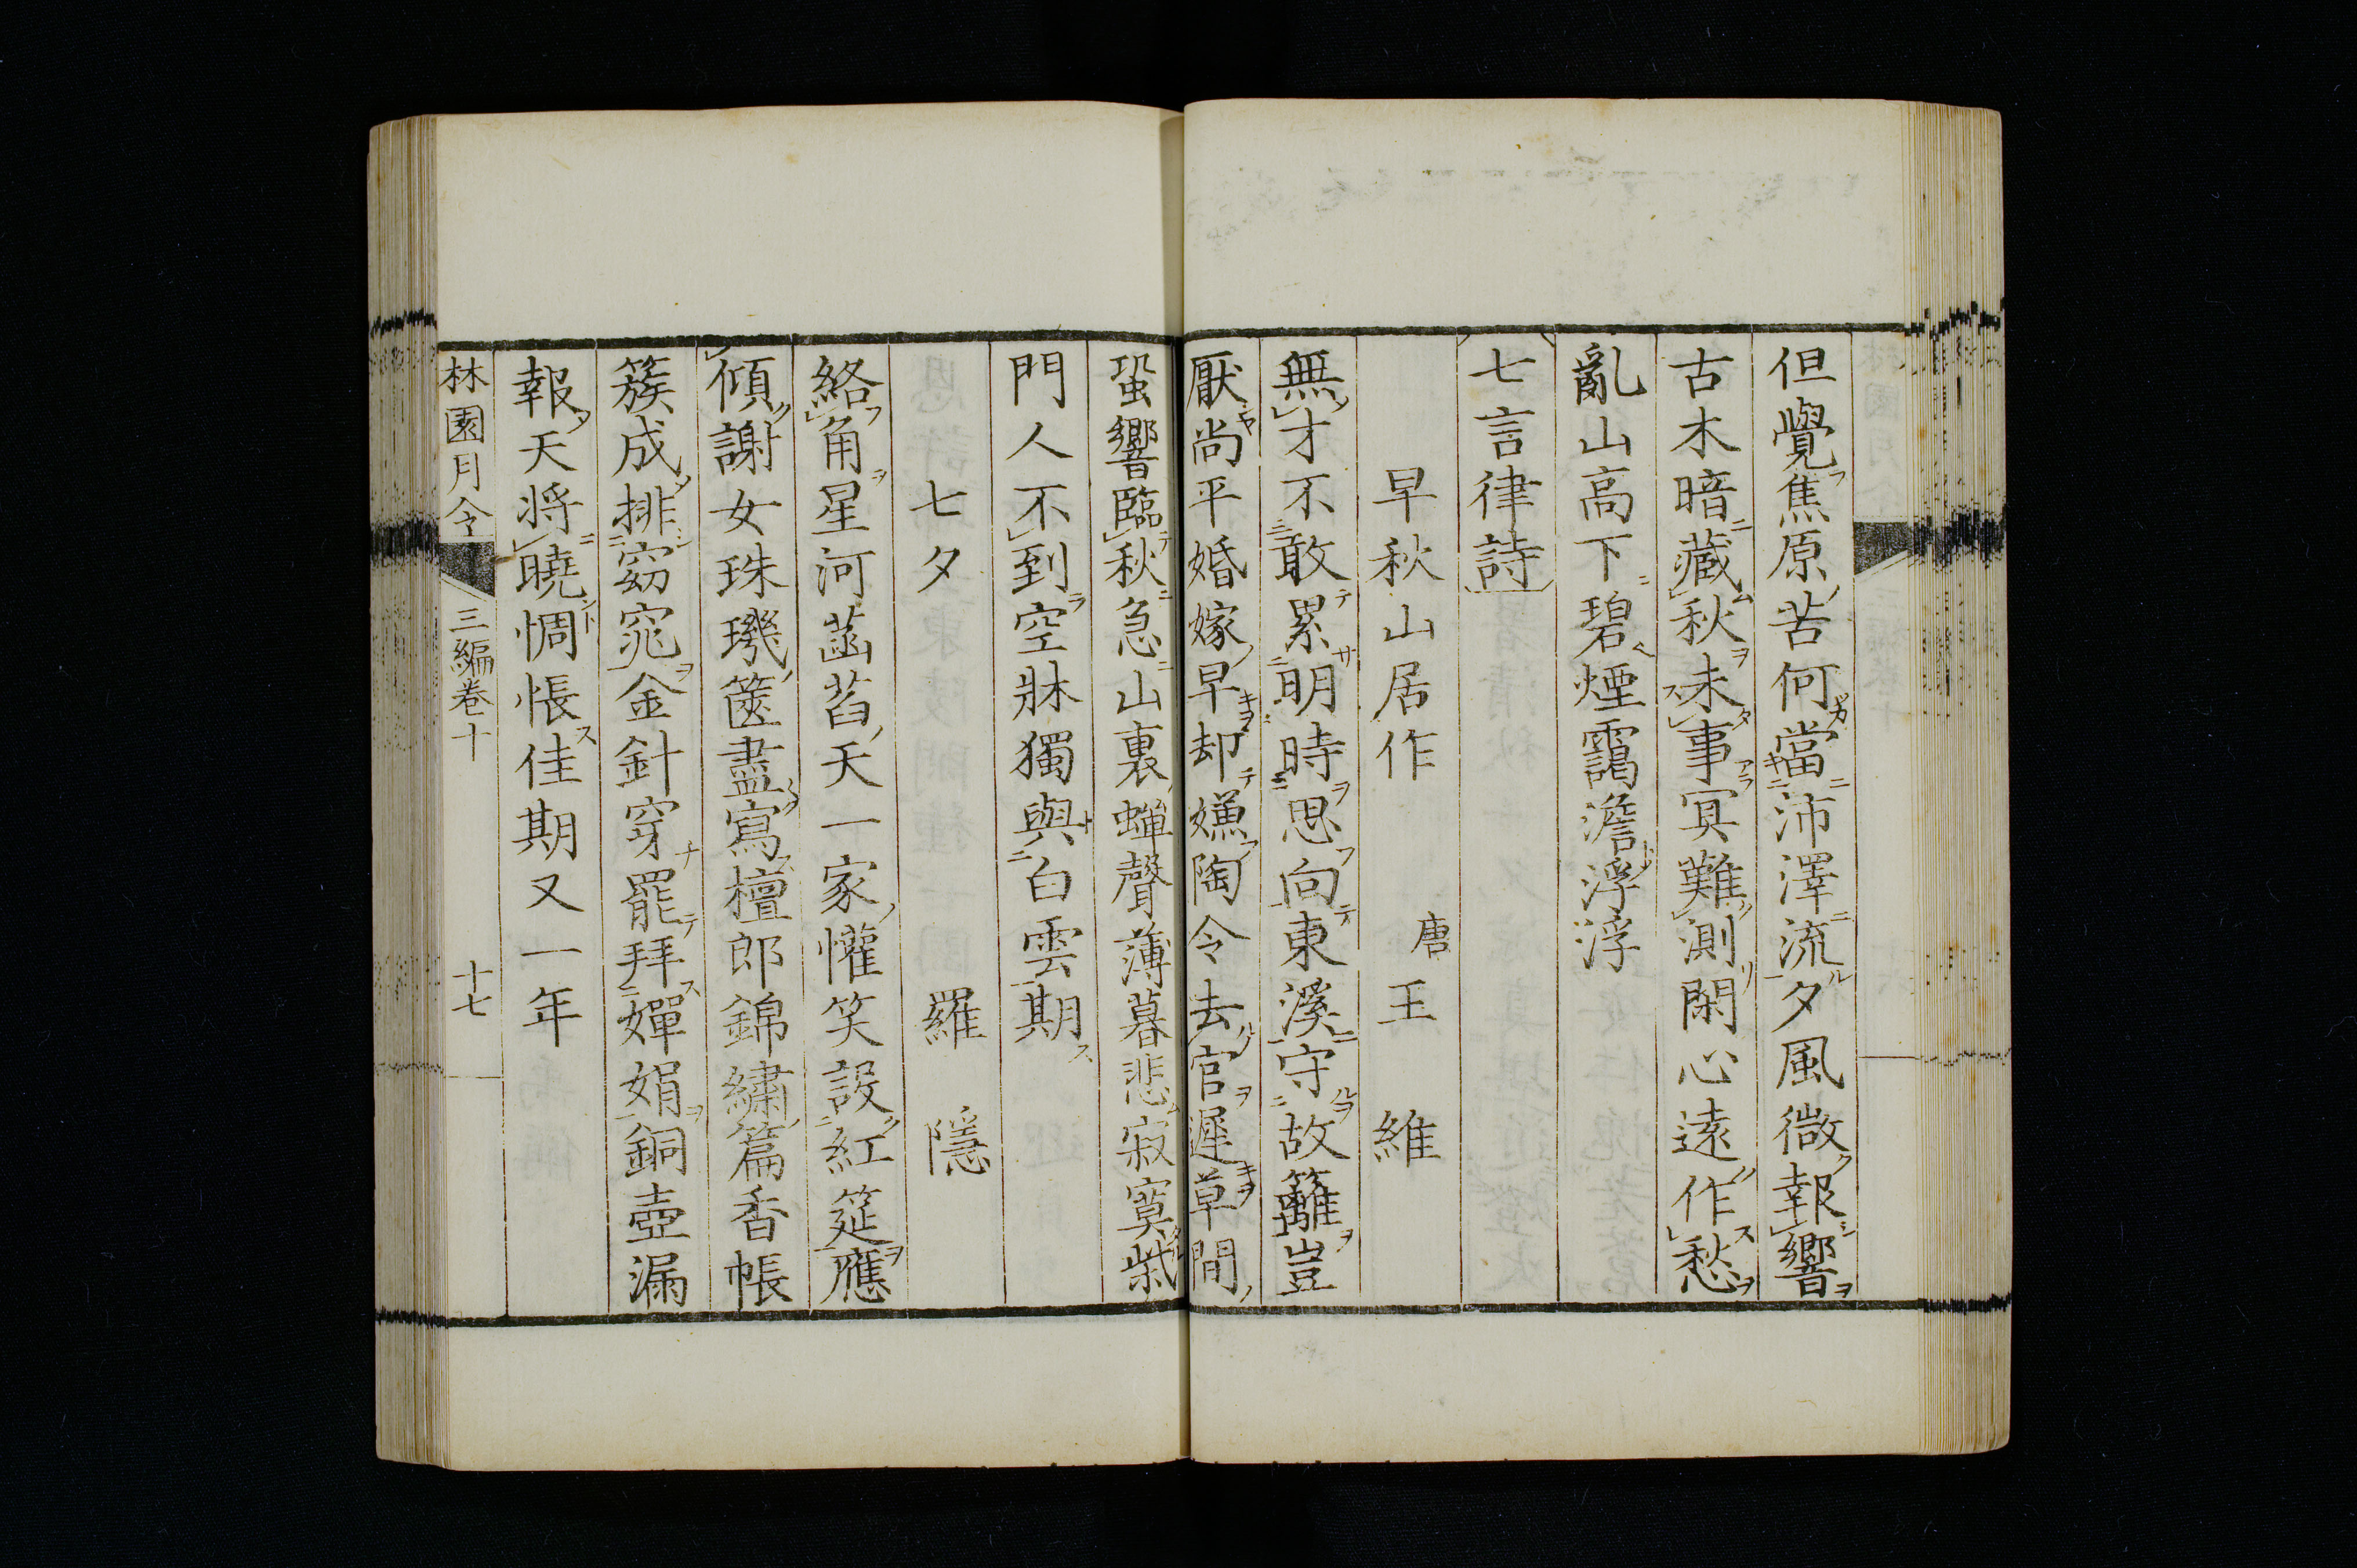 但覺焦原苦何當沛澤流夕風微報響
古木暗藏秋未事冥難測閑心遠作愁
亂山高下碧煙靄澹浮浮
七言律詩
早秋山居作 唐 王維
無才不敢累明時思向東溪守故籬豈
厭尚平婚嫁早却嫌陶令去官遲草間
蛩響臨秋急山裏蟬聲薄暮悲寂寞柴
門人不到空牀獨與白雲期
七夕 羅隱
絡角星河菡萏天一家懽笑設紅筵應
傾謝女珠璣篋盡寫檀郎錦繡篇香帳
簇成排窈窕金針穿罷拜嬋娟銅壺漏
報天將曉惆悵佳期又一年
林園月令 三編卷十 十七